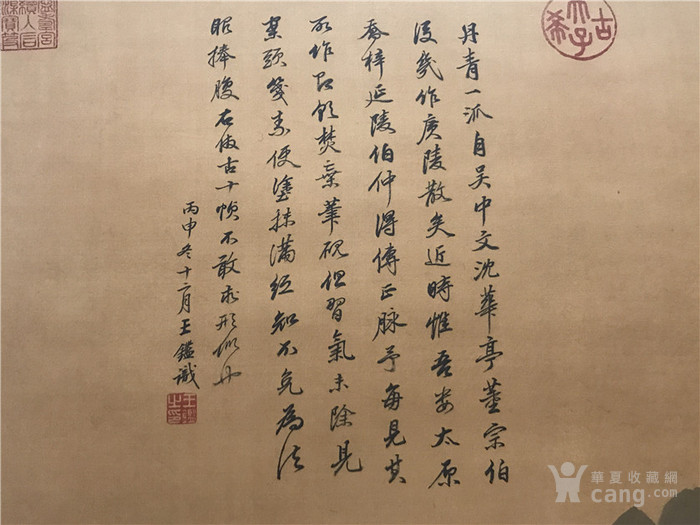 古希天子
丹青一派自吳中文沈華亭董宗伯
後幾作廣陵散矣近時惟吾婁太原
喬梓延陵伯仲得傳正脉予每見其
所作只欲焚棄筆硯但習氣未除見
案頭箋素便塗抹滿紙知不免為法
眼捧腹右倣古十幀不敢求形似
丙申冬十二月王鑑識
華夏收藏網
cang.com